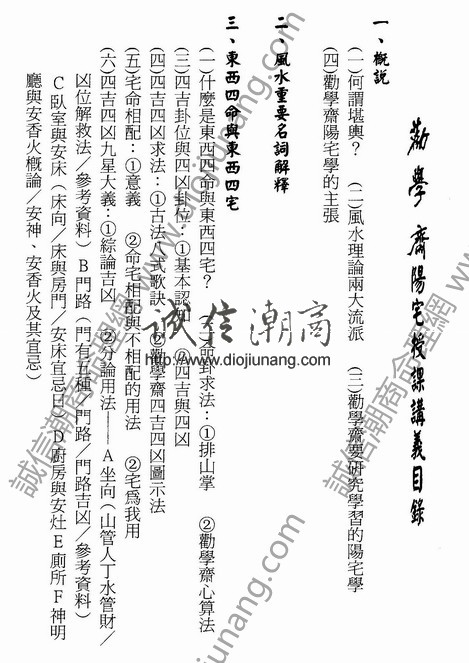 勸學齋陽宅授課講義目錄
一、概說
(一)何謂堪輿? (二)風水理論兩大流派 (三)勸學齋要研究學習的陽宅學
(四)勸學齋陽宅學的主張
二、風水重要名詞解釋
三、東西四命與東西四宅
(一)什麼是東西四命與東西四宅? (二)命卦求法:①排山掌 ②勸學齋心算法
(三)四吉卦位與四凶卦位:①基本認知 ②四吉與四凶
(四)四吉四凶求法:①古法八式歌訣 ②勸學齋四吉四凶圖示法
(五)宅命相配:①意義 ②命宅相配與不相配的用法 ②宅為我用
(六)四吉四凶九星大義:①綜論吉凶 ②分論用法——A坐向(山管人丁水管財/
凶位解救法/參考資料)B門路(門有五種/門路/門路吉凶/參考資料)
C臥室與安床(床向/床與房門/安床宜忌日)D廚房與安灶E廁所F神明
廳與安香火概論/安神、安香火及其宜忌)
誠信潮商
http://www.diojiunang.com
誠信潮商命理網 www.diojiunang.com
誠信潮商命理網 www.diojiunang.com